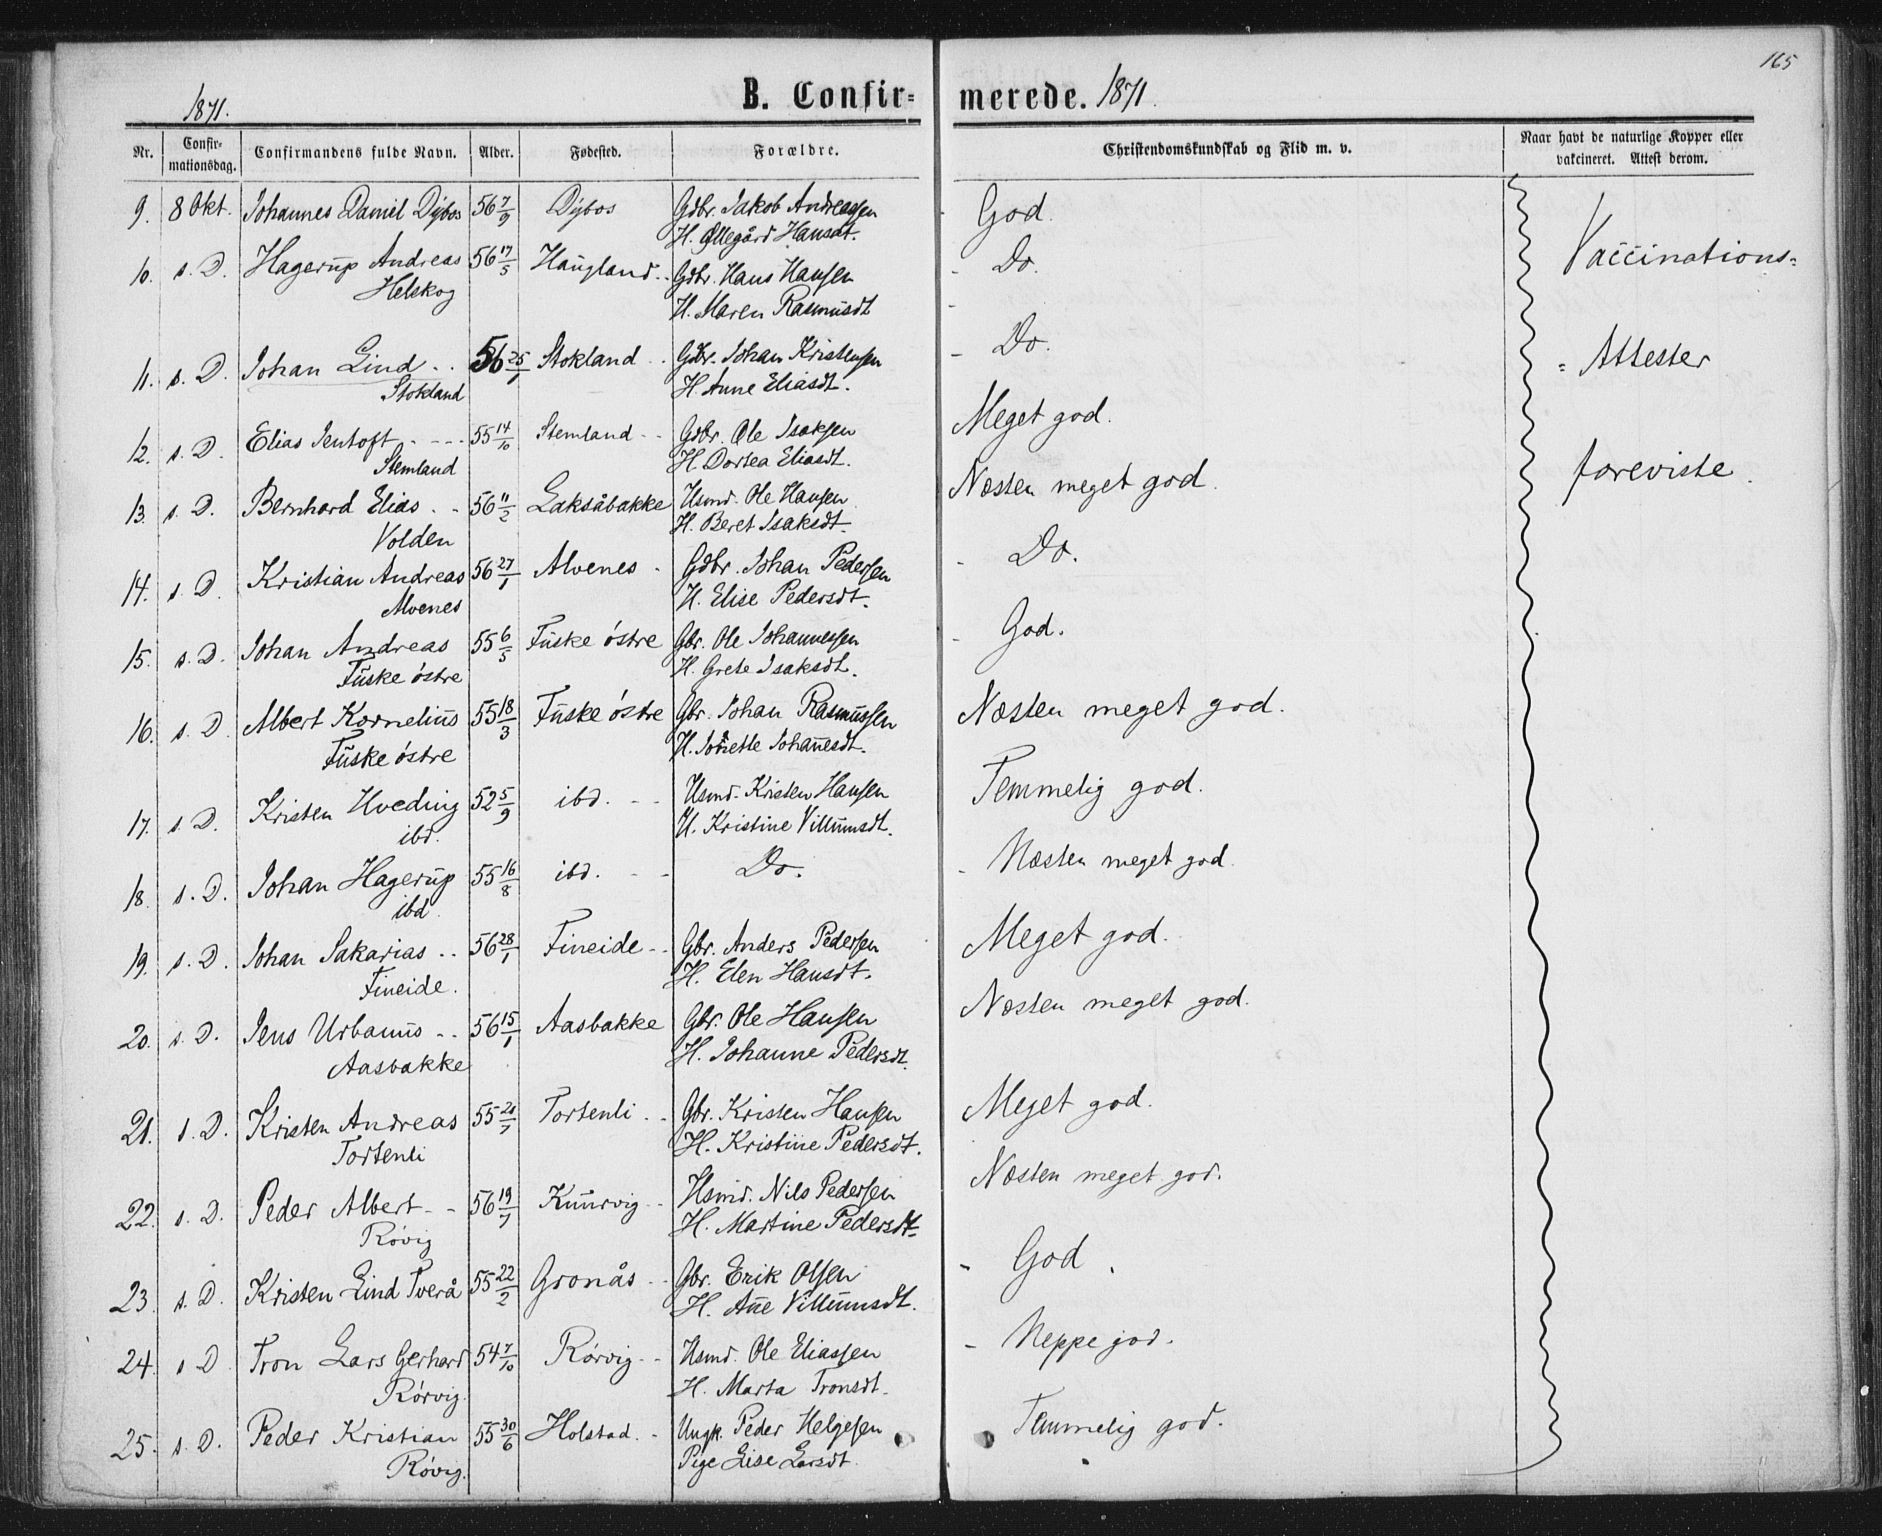 165
1871.
B. Confir=
merede. 1871.
Nr. Confir-mationsdag. Confirmandens fulde Navn. Alder. Fødested. Forældre. Christendomskundskab og Flid m. v. Naar havt de naturlige Kopper eller vakcineret. Attest derom.
9. 8 Okt. Johannes Daniel Dybos 56 7/9 Dybos Gdbr. Jakob Andreassen God.
H. Øllegård Hansdt.
10. s. D. Hagerup Andreas 56 17/5 Haugland Gdbr. Hans Hansen Do. Vaccinations=
Helskog H. Maren Rasmusdt
11. s. D. Johan Lind 56 25/1 Stokland Gdbr. Johan Kristensen Do. = Attester
Stokland H. Anne Eliasdt.
12. s. D. Elias Jentoft 55 14/10 Stemland Gdbr. Ole Isaksen Meget god.
Stemland H. Dortea Eliasdt.
13. s. D. Bernhard Elias 56 11/2 Laksåbakke Husmd. Ole Hansen Næsten meget god. foreviste.
Volden H. Beret Isaksdt.
14. s. D. Kristian Andreas 56 27/1 Alvenes Gdbr. Johan Pedersen Do.
Alvenes H. Elise Pedersdt.
15. s. D. Johan Andreas 55 6/5 Fuske østre Gbr. Ole Johannessen God.
Fuske østre H. Grete Isaksdt.
16. s. D. Albert Kornelius 55 18/3 Fuske østre Gbr. Johan Rasmussen Næsten meget god.
Fuske østre H. Johanesdt.
17. s. D. Kristen Hveding 52 5/9 ibd. Husmd. Kristen Hansen Temmelig god.
ibd. H. Kristine Villumsdt.
18. s. D. Johan Hagerup 55 16/8 ibd. Do. Næsten meget god
ibd.
19. s. D. Johan Sakarias 56 28/1 Fineide Gbr. Anders Pedersen Meget god.
Fineide. H. Elen Hansdt.
20. s. D. Jens Urbanus 56 15/1 Aasbakke Gbr. Ole Hansen Næsten meget god.
Aasbakke H. Johanne Pedersdt.
21. s. D. Kristen Andreas 55 Tortenli Gbr. Kristen Hansen Meget god.
Tortenli H. Kristine Pedersdt.
22. s. D. Peder Albert 56 19/7 Knurvig Husmd. Nils Pedersen Næsten meget god.
Rövig H. Martine Pedersdt.
23. s. D. Kristen Lind Tverå 55 22/2 Gronås Gbr. Erik Olsen God.
H. Ane Villumsdt.
24. s. D. Tron Lars Gerhard 54 7/10 Rörvig Husmd. Ole Eliassen Neppe god.
Rörvig. H. Marta Tronsdt.
25. s. D. Peder Kristian 55 30/6 Holstad Ungk. Peder Helgesen Temmelig god.
Rövig. Pige Lise Larsdt.